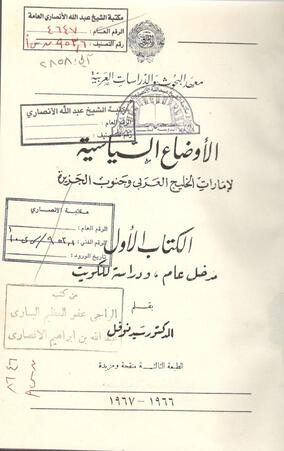 مكتبة الشيخ عبد الله الأنصاري العامة
الرقم العام : ٤٦٤٧
رقم التصنيف
معهد البحوث والدراسات العربية
مكتبة الشيخ عبد الله الأنصاري
الرقم العام :
رقم التصنيف :
الأوضاع السياسية
لإمارات الخليج العربي وجنوب الجزيرة
مكتبة الأنصاري
الرقم العام :
الرقم الفني :
تاريخ الورود :
الكتاب الأول
مدخل عام ، ودراسة للكويت
من كتب
الراجي عفو العظيم الباري
عبد الله بن ابراهيم الأنصاري
بقلم
الدكتور سيد نوفل
الطبعة الثالثة منقحة ومزيدة
١٩٦٦ – ١٩٦٧